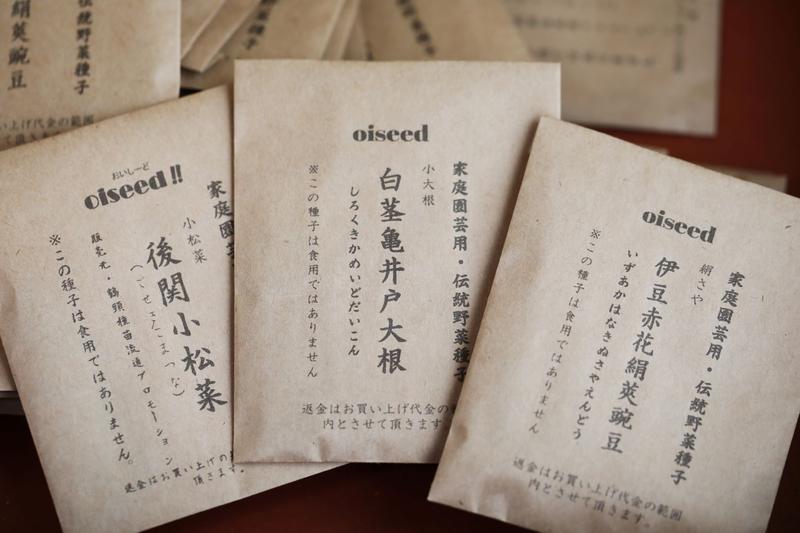 おいしーど
oiseed!!
小松菜
後関小松菜
販売元・鶴頸種苗流通プロモーション
※この種子は食用ではありません。
oiseed
家庭園芸用・伝統野菜種子
小大根
白茎亀井戸大根
しろくきかめいどだいこん
※この種子は食用ではありません
返金はお買い上げ代金の
内とさせて頂きます
oiseed
家庭園芸用・伝統野菜種子
絹さや
伊豆赤花絹莢豌豆
いずあかはなきぬさやえんどう
※この種子は食用ではありません
返金はお買い上げ代金の範囲
内とさせて頂きます。
絹莢豌豆
伝統野菜種子